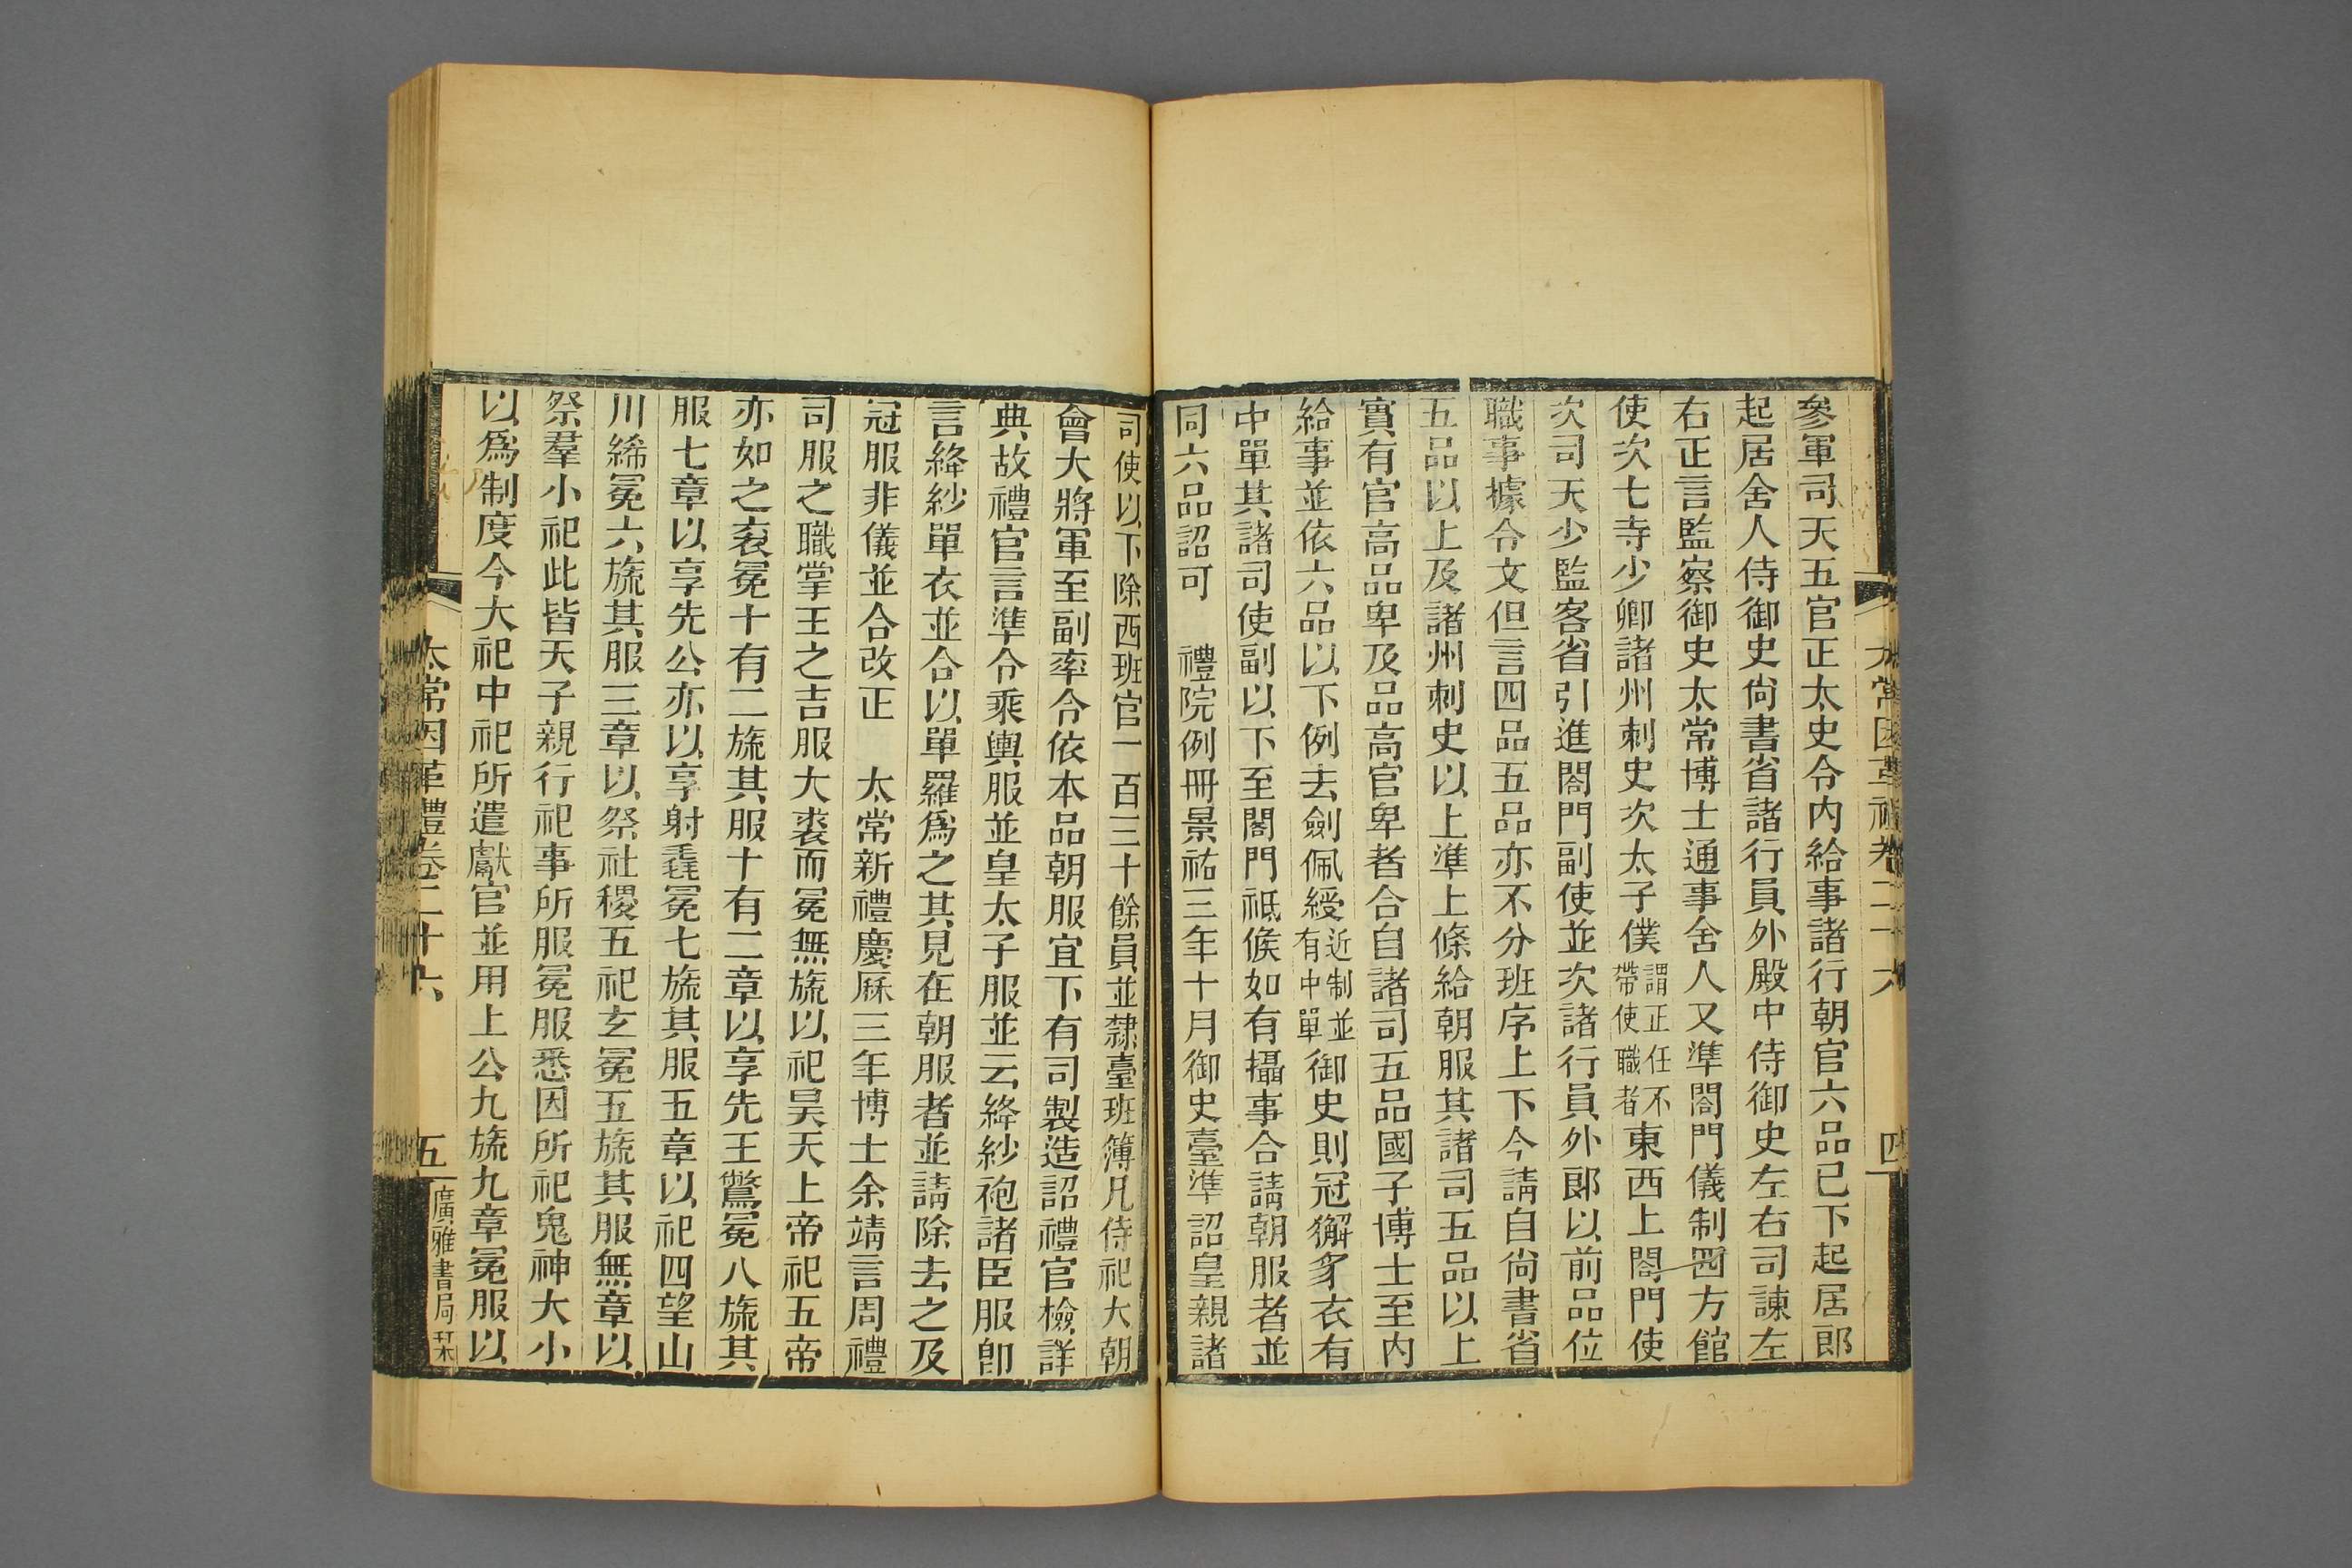 太常因革禮卷二十六
四
參軍司天五官正太史令內給事諸行朝官六品已下起居郎
起居舍人侍御史尙書省諸行員外殿中侍御史左右司諫左
右正言監察御史太常博士通事舍人又準閤門儀制四方館
使次七寺少卿諸州刺史次太子僕謂正任不帶使職者東西上閤門使
次司天少監客省引進閤門副使並次諸行員外郞以前品位
職事據令文但言四品五品亦不分班序上下今請自尙書省
五品以上及諸州刺史以上準上條給朝服其諸司五品以上
實有官高品卑及品高官卑者合自諸司五品國子博士至內
給事並依六品以下例去劍佩綬近制並有中單御史則冠獬豸衣有
中單其諸司使副以下至閤門祗候如有攝事合請朝服者並
同六品詔可　禮院例冊景祐三年十月御史臺準詔皇親諸
司使以下除西班官一百三十餘員並隸臺班簿凡侍祀大朝
會大將軍至副率令依本品朝服宜下有司製造詔禮官檢詳
典故禮官言準令乘輿服並皇太子服並云絳紗袍諸臣服卽
言絳紗單衣並合以單羅爲之其見在朝服者並請除去之及
冠服非儀並合改正　太常新禮慶厤三年博士余靖言周禮
司服之職掌王之吉服大裘而冕無旒以祀昊天上帝祀五帝
亦如之袞冕十有二旒其服十有二章以享先王鷩冕八旒其
服七章以享先公亦以享射毳冕七旒其服五章以祀四望山
川絺冕六旒其服三章以祭社稷五祀玄冕五旒其服無章以
祭羣小祀此皆天子親行祀事所服冕服悉因所祀鬼神大小
以爲制度今大祀中祀所遣獻官並用上公九旒九章冕服以
太常因革禮卷二十六
五
廣雅書局栞